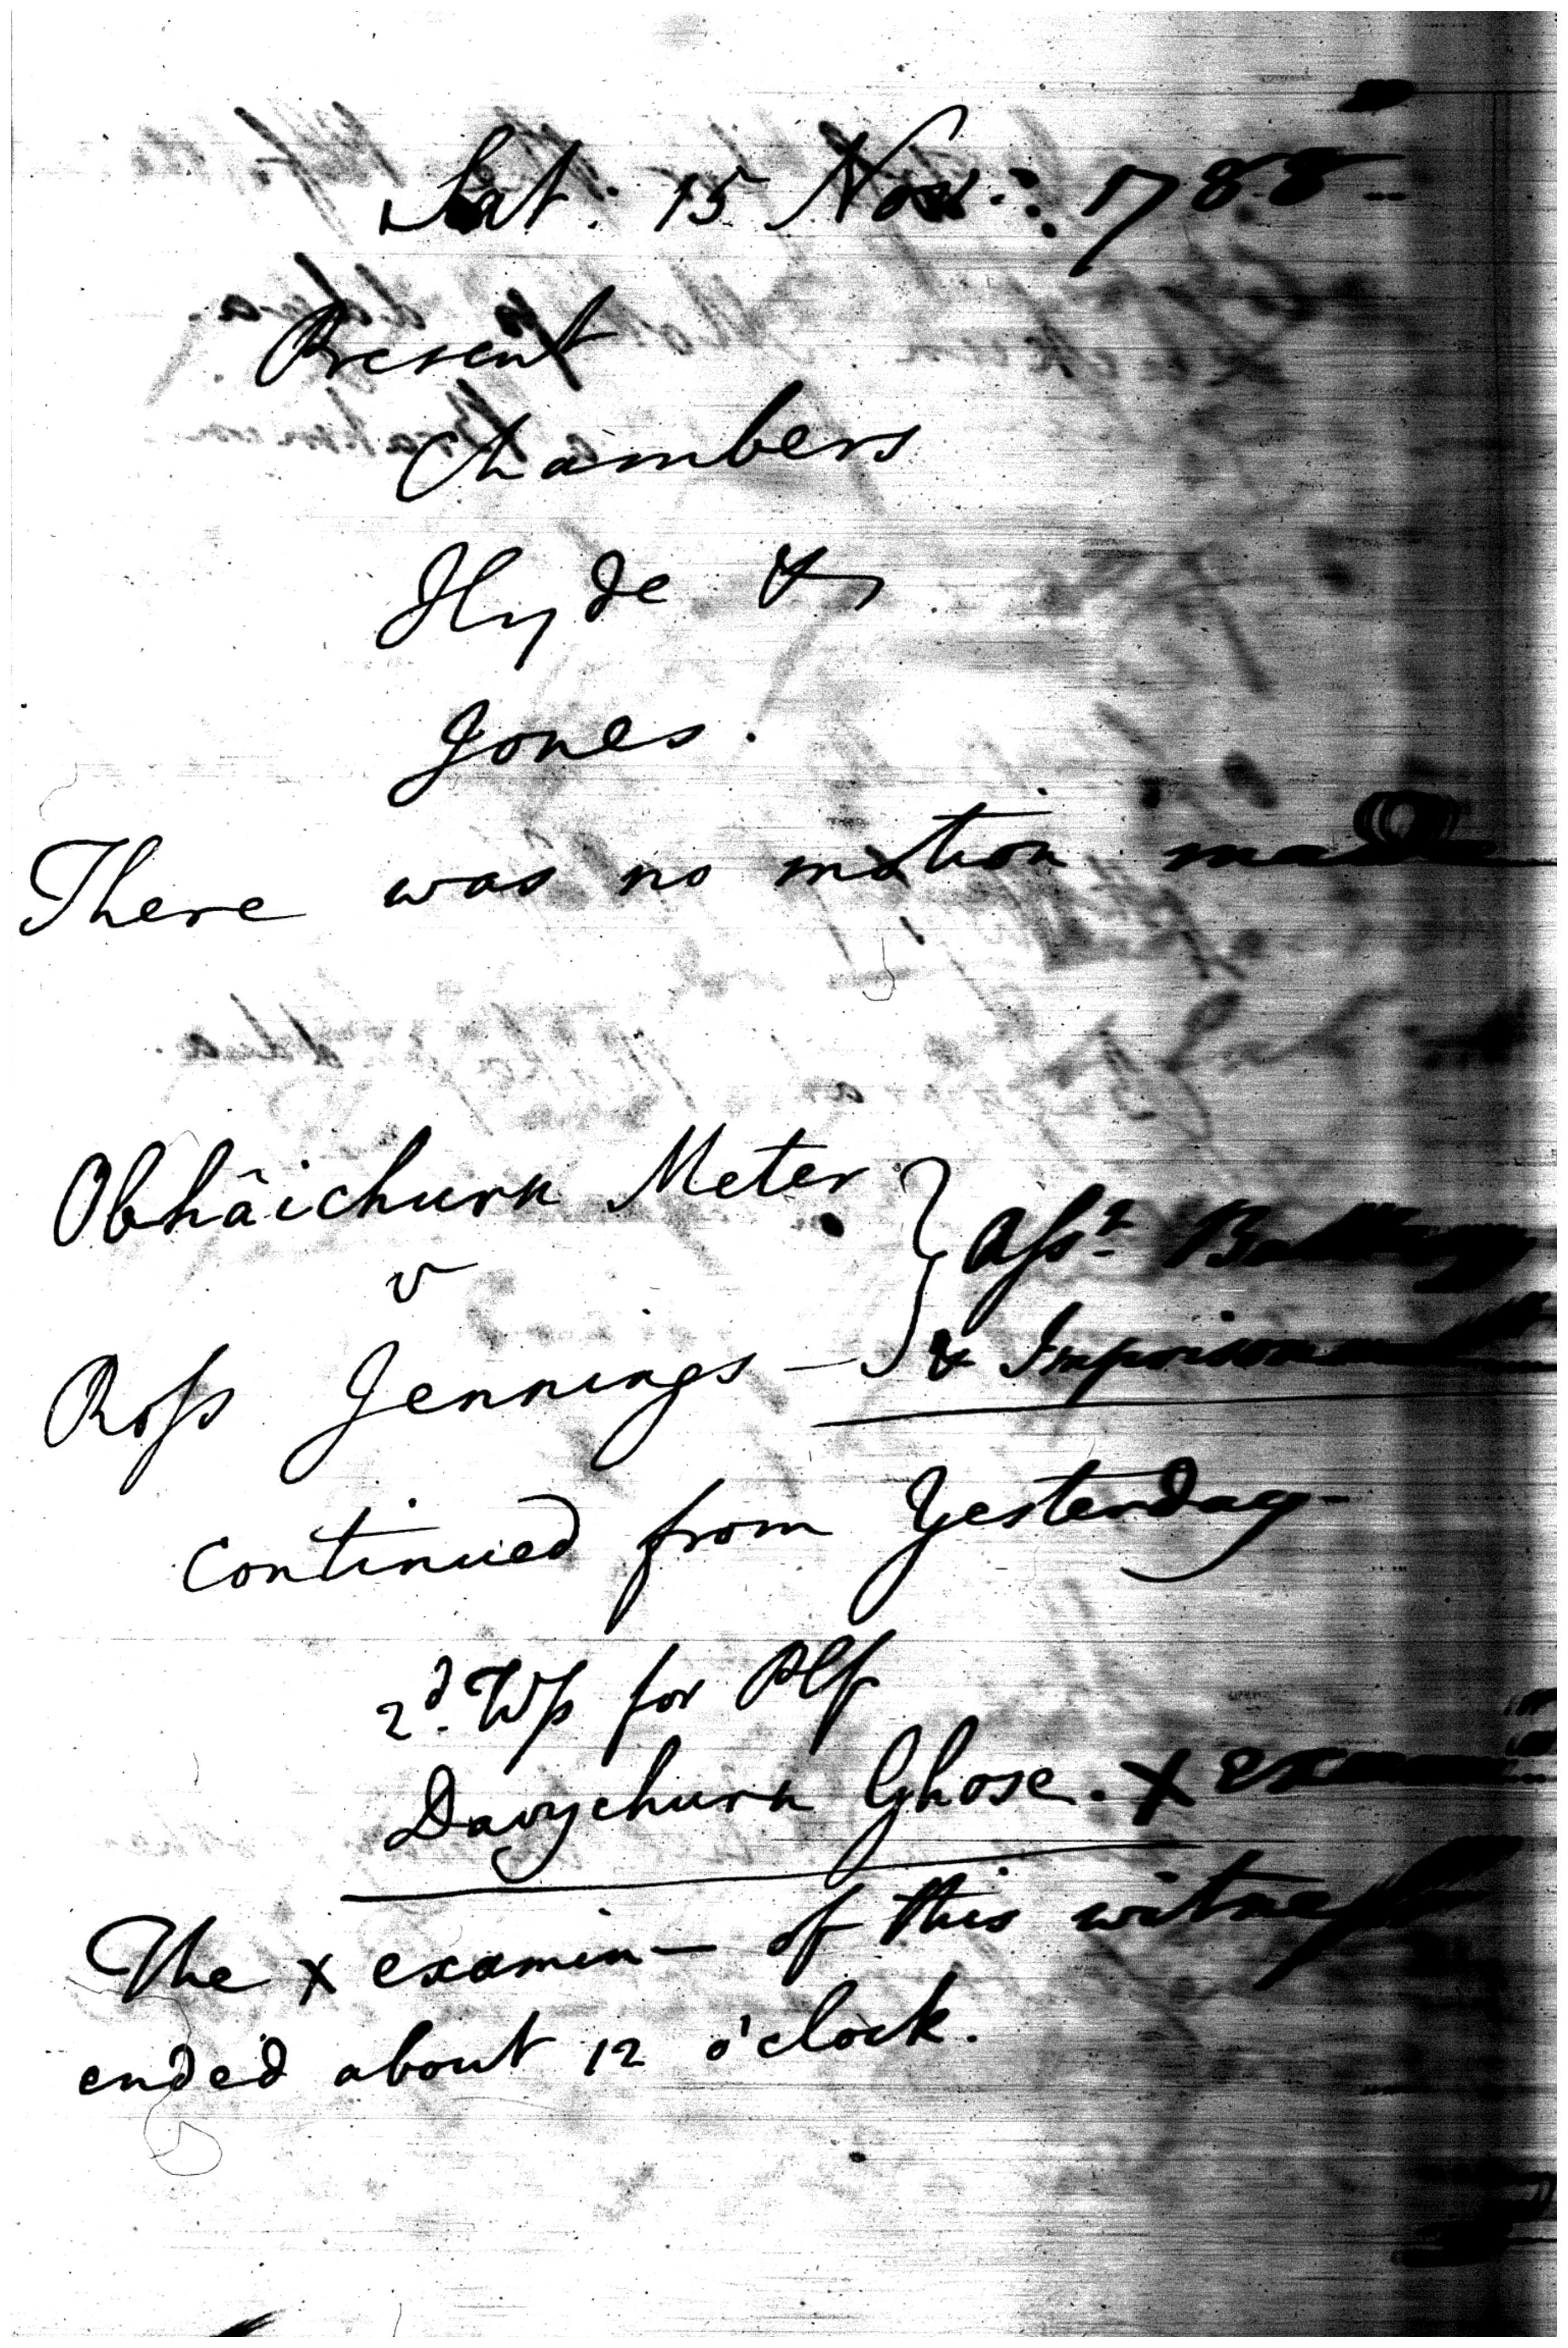 Sat: 15 Nov:: 1788
Present
Chambers
Hyde &
Jones.
There was no motion made
Obhâichurn Meter
v
Ross Jennings —
Asst. Battery
& Imprisonment
continued from Yesterday —
2d. Wss for Plf
Davychurn Ghose. X exam
The x examin— of this witness
ended about 12 o'clock.